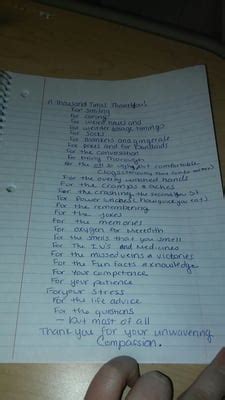 A Thousand Times Thankyou!
For smiling
For caring
For
For
For socks
For blankets and gingerale
For pixels and for Band aids
For the conversation
For being Thorough
For the comfortable
For the overly washed hands
For the cramps & aches
For the crashing,
For Power
For the remembering
For the jokes
For the memories
For oxygen for Meredith
For the smells that you smell
For The IVs and Medicines
For the missed veins & victories
For the Fun Facts & knowledge
For Your competence
For your patience
For your stress
For the life advice
For the questions
— But most of all
Thank you for your unwavering
Compassion.